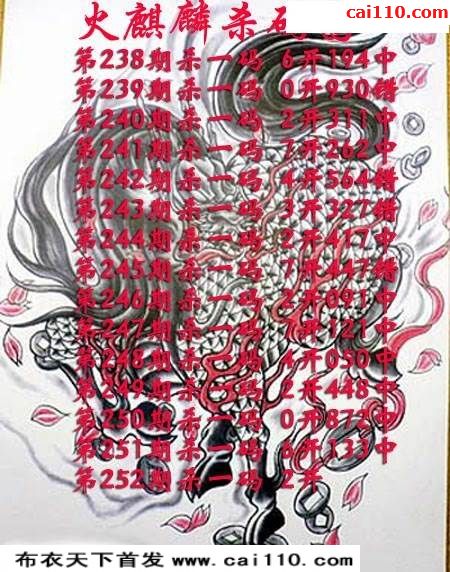 cai110.com
火麒麟杀码
第238期杀一码 6开194中
第239期杀一码 0开930错
第240期杀一码 2开311中
第241期杀一码 7开262中
第242期杀一码 4开564错
第243期杀一码 3开327错
第244期杀一码 2开417中
第245期杀一码 7开447错
第246期杀一码 2开091中
第247期杀一码 7开121中
第248期杀一码 4开050中
第249期杀一码 2开448中
第250期杀一码 0开872中
第251期杀一码 6开133中
第252期杀一码 2开
布衣天下首发 www.cai110.com